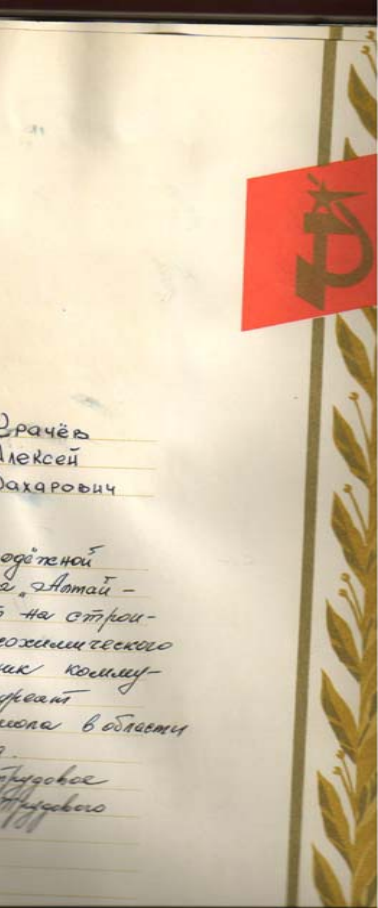 рачёв
Алексей
Захарович
одёжной
а „Алтай–
на строи-
охимического
ник комму-
уреат
мола в области
а.
трудовое
Трудового